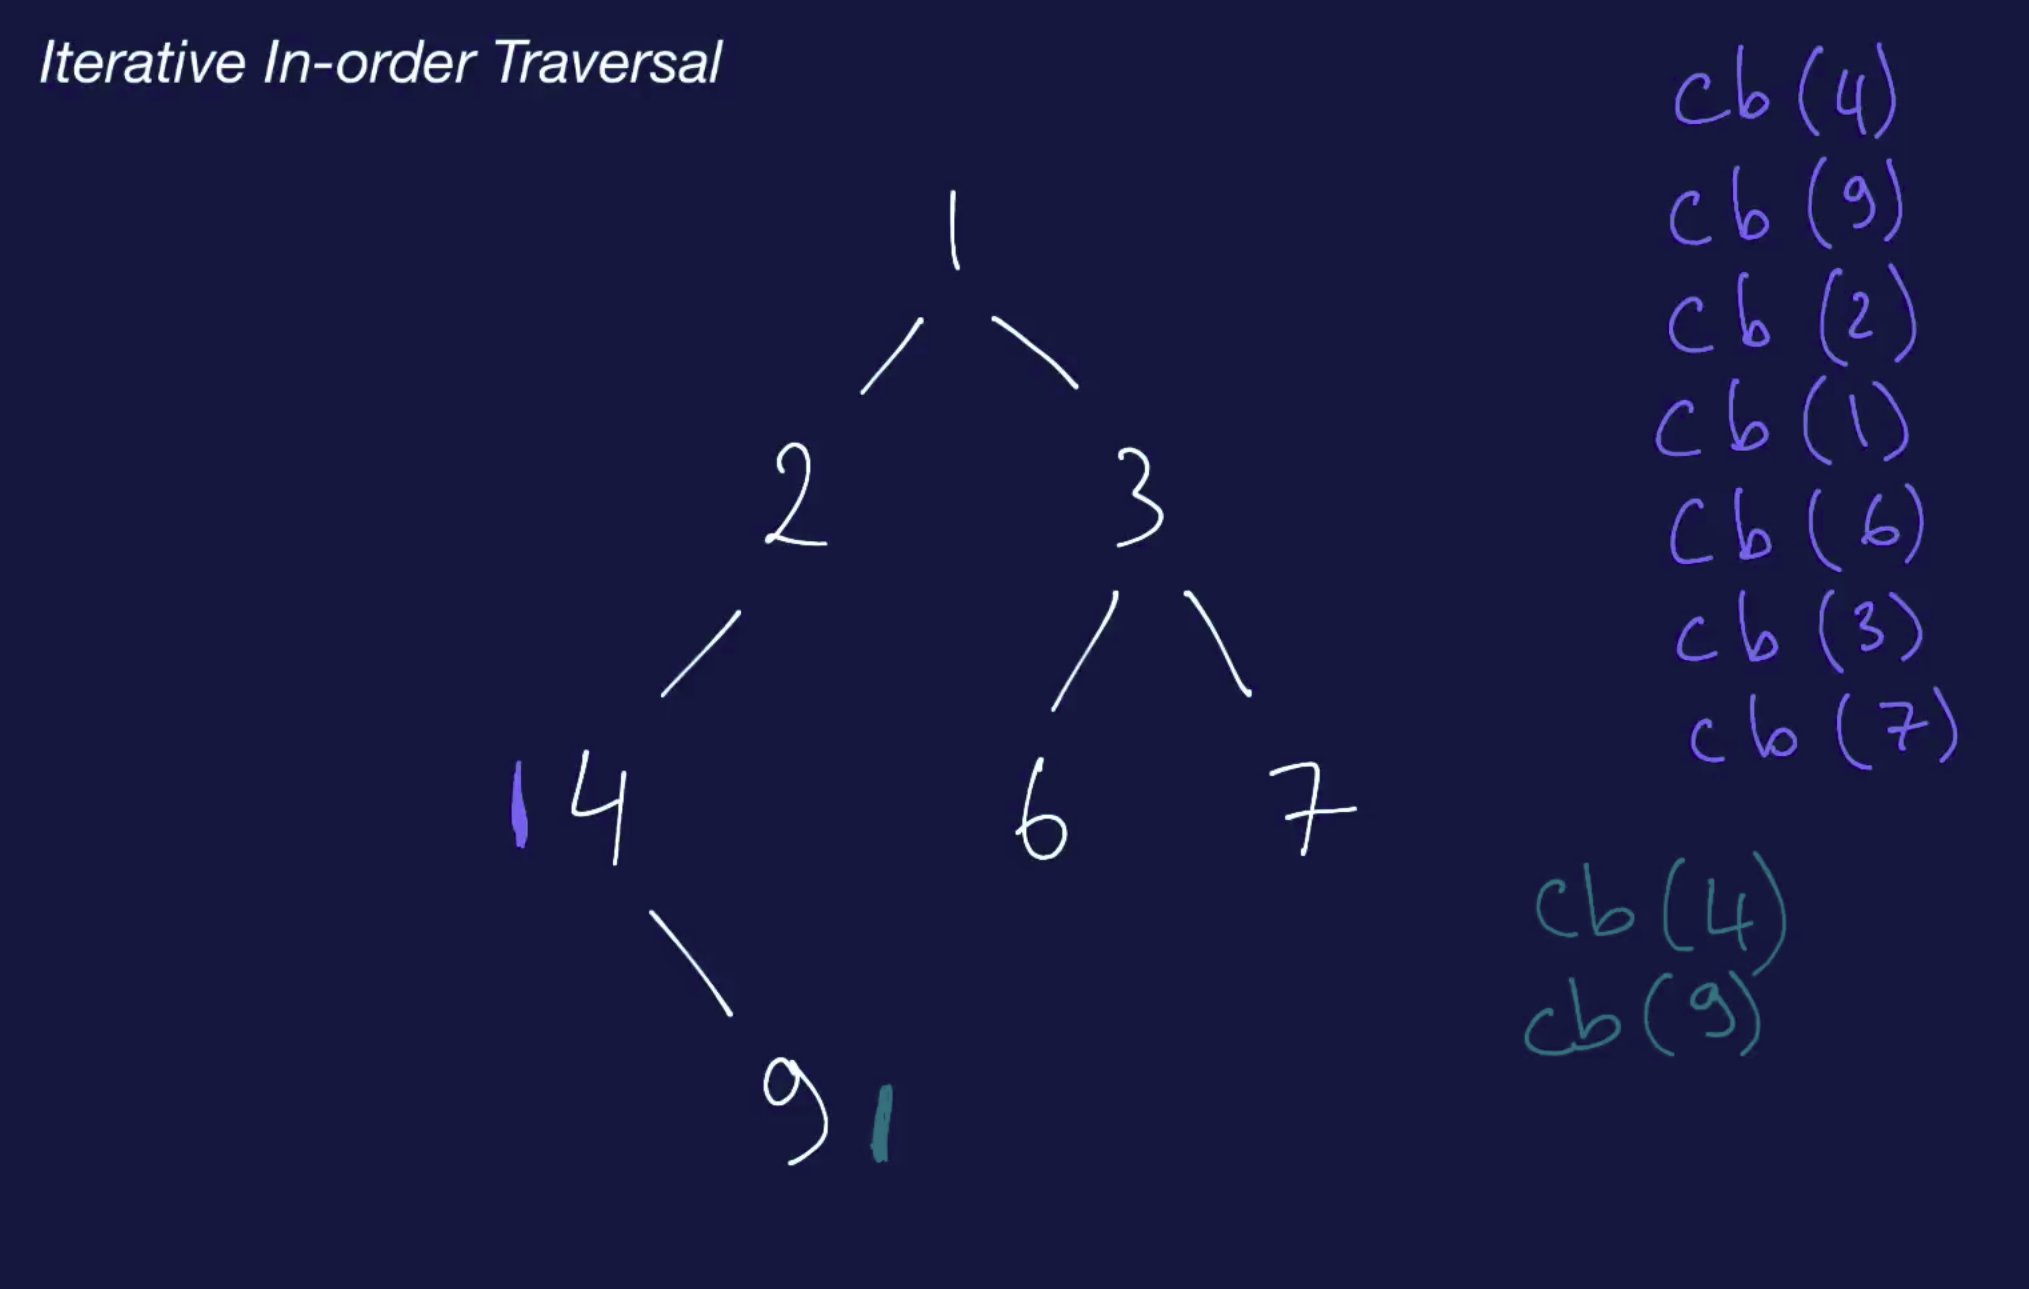 Iterative In-order Traversal
1
2 3
4 6 7
9
cb (4)
cb (9)
cb (2)
cb (1)
cb (6)
cb (3)
cb (7)
cb (4)
cb (9)